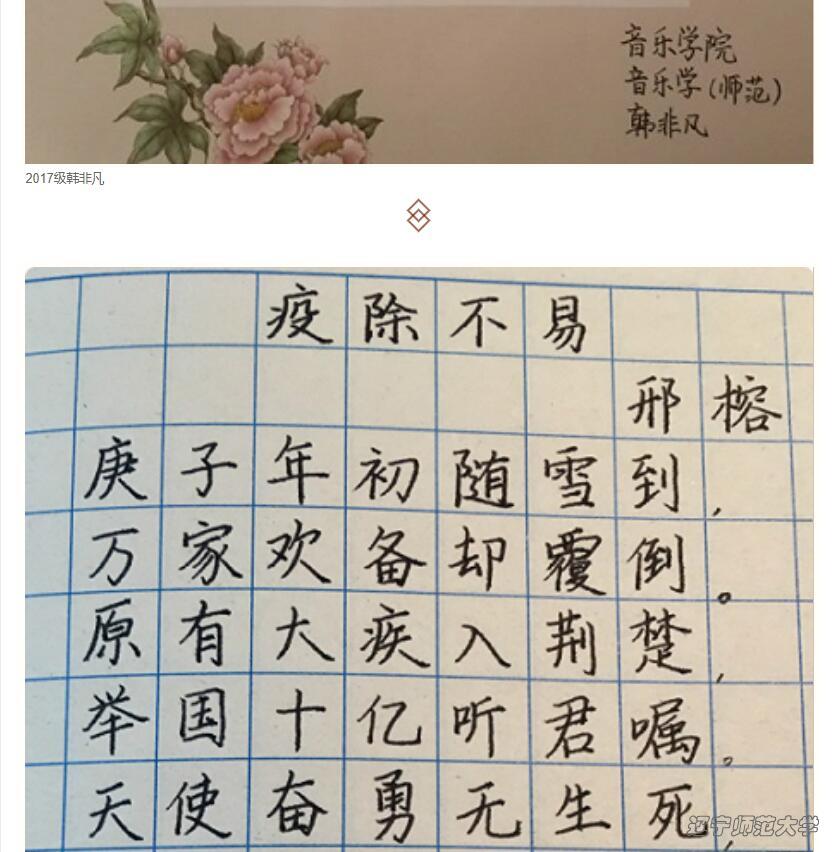 音乐学院
音乐学(师范)
韩非凡
2017级韩非凡
疫除不易
邢榕
庚子年初随雪到,
万家欢备却覆倒。
原有大疾入荆楚,
举国十亿听君嘱。
天使奋勇无生死,
辽宁师范大学